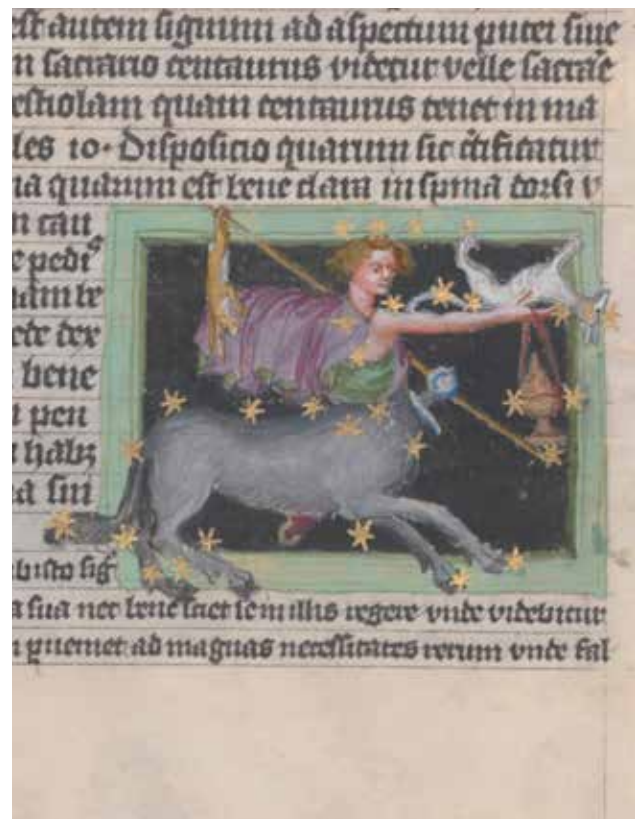 est autem signum ad aspectum putei siue
n sacrario centaurus videtur velle sacra
estiolam quam centaurus tenet in ma
les 10. Disposicio quarum sic
na quarum est bene clara in spina dorsi v
n cau
e pedi
nam le
ete dex
bene
n pen
habz
a sin
busto sig
a sua nec bene sciet se in illis regere vnde videbitur
n pueniet ad magnas necessitates rerum vnde fal